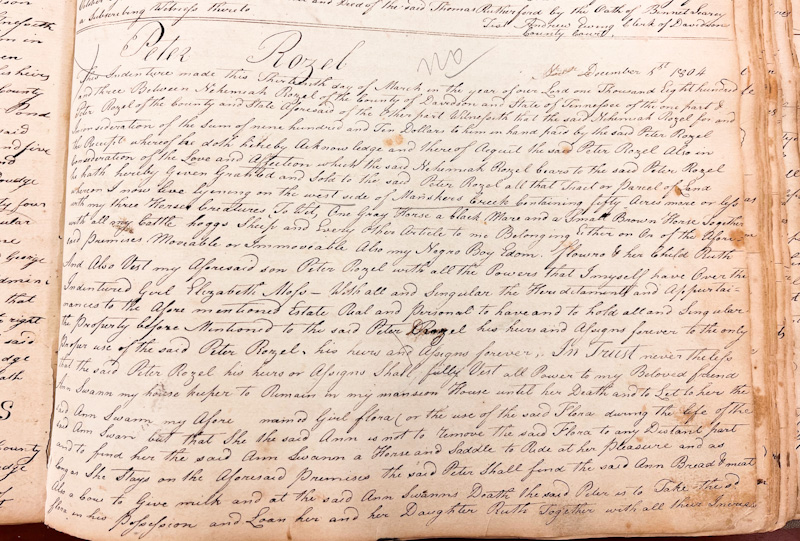 a Subscribing Witness thereto and Prov'd of the said Thomas Rutherford by the Oath of Bennet Searcy
Test Andrew Ewing Clerk of Davidson
County Court
Peter Rozel
no
December 1st 1804
This Indenture made this Thirteenth day of March in the year of our Lord one Thousand Eight hundred
and three Between Nehemiah Rozel of the County of Davidson and State of Tennessee of the one part &
Peter Rozel of the County and State Aforesaid of the Other part Witnesseth that the said Nehemiah Rozel for and
in Consideration of the Sum of nine hundred and Ten Dollars to him in hand paid by the said Peter Rozel
the Receipt whereof he doth hereby Acknowledge and thereof Aquit the said Peter Rozel Also in
Consideration of the Love and Affection which the said Nehemiah Rozel bears to the said Peter Rozel
he hath hereby Given Granted and Sold to the said Peter Rozel all that Tract or Parcel of Land
whereon I now live Lying on the west side of Manskers Creek Containing fifty Acres more or less
with my three Horse Creatures, To Wit, One Gray Horse a black Mare and a Small Brown Horse Together
with all my Cattle hoggs Sheep and Every Other Article to me Belonging Either on Or of the Afore-
said premises Moveable or Immoveable Also my Negro Boy Edom. Flowro & her Child Ruth
And Also Vest my Aforesaid son Peter Rozel with all the Powers that I myself have Over the
Indentured Girl Elizabeth Moss — With all and Singular the Hereditaments and Appurtai-
nances to the Afore mentioned Estate Real and Personal to have and to hold all and Singular
the Property before Mentioned to the said Peter Rozel his heirs and Assigns forever to the only
proper use of the said Peter Rozel. his heirs and Assigns forever. In Trust never the less
that the said Peter Rozel his heirs or Assigns Shall fully Vest all Power to my Beloved friend
Ann Swann my house keeper to Remain in my mansion House until her Death and to Let to her the
said Ann Swann my Afore named Girl flora (or the use of the said Flora during the life of the
said Ann Swan but that She the said Ann is not to remove the said Flora to any Distant part
and to find her the said Ann Swann a Horse and Saddle to Ride at her Pleasure and as
long as She Stays on the Aforesaid Premises the said Peter Shall find the said Ann Bread & meat
Also a Cow to Give milk and at the said Ann Swanns Death the said Peter is to Take the sd
flora in his Possession and Loan her and her Daughter Ruth Together with all their Increase